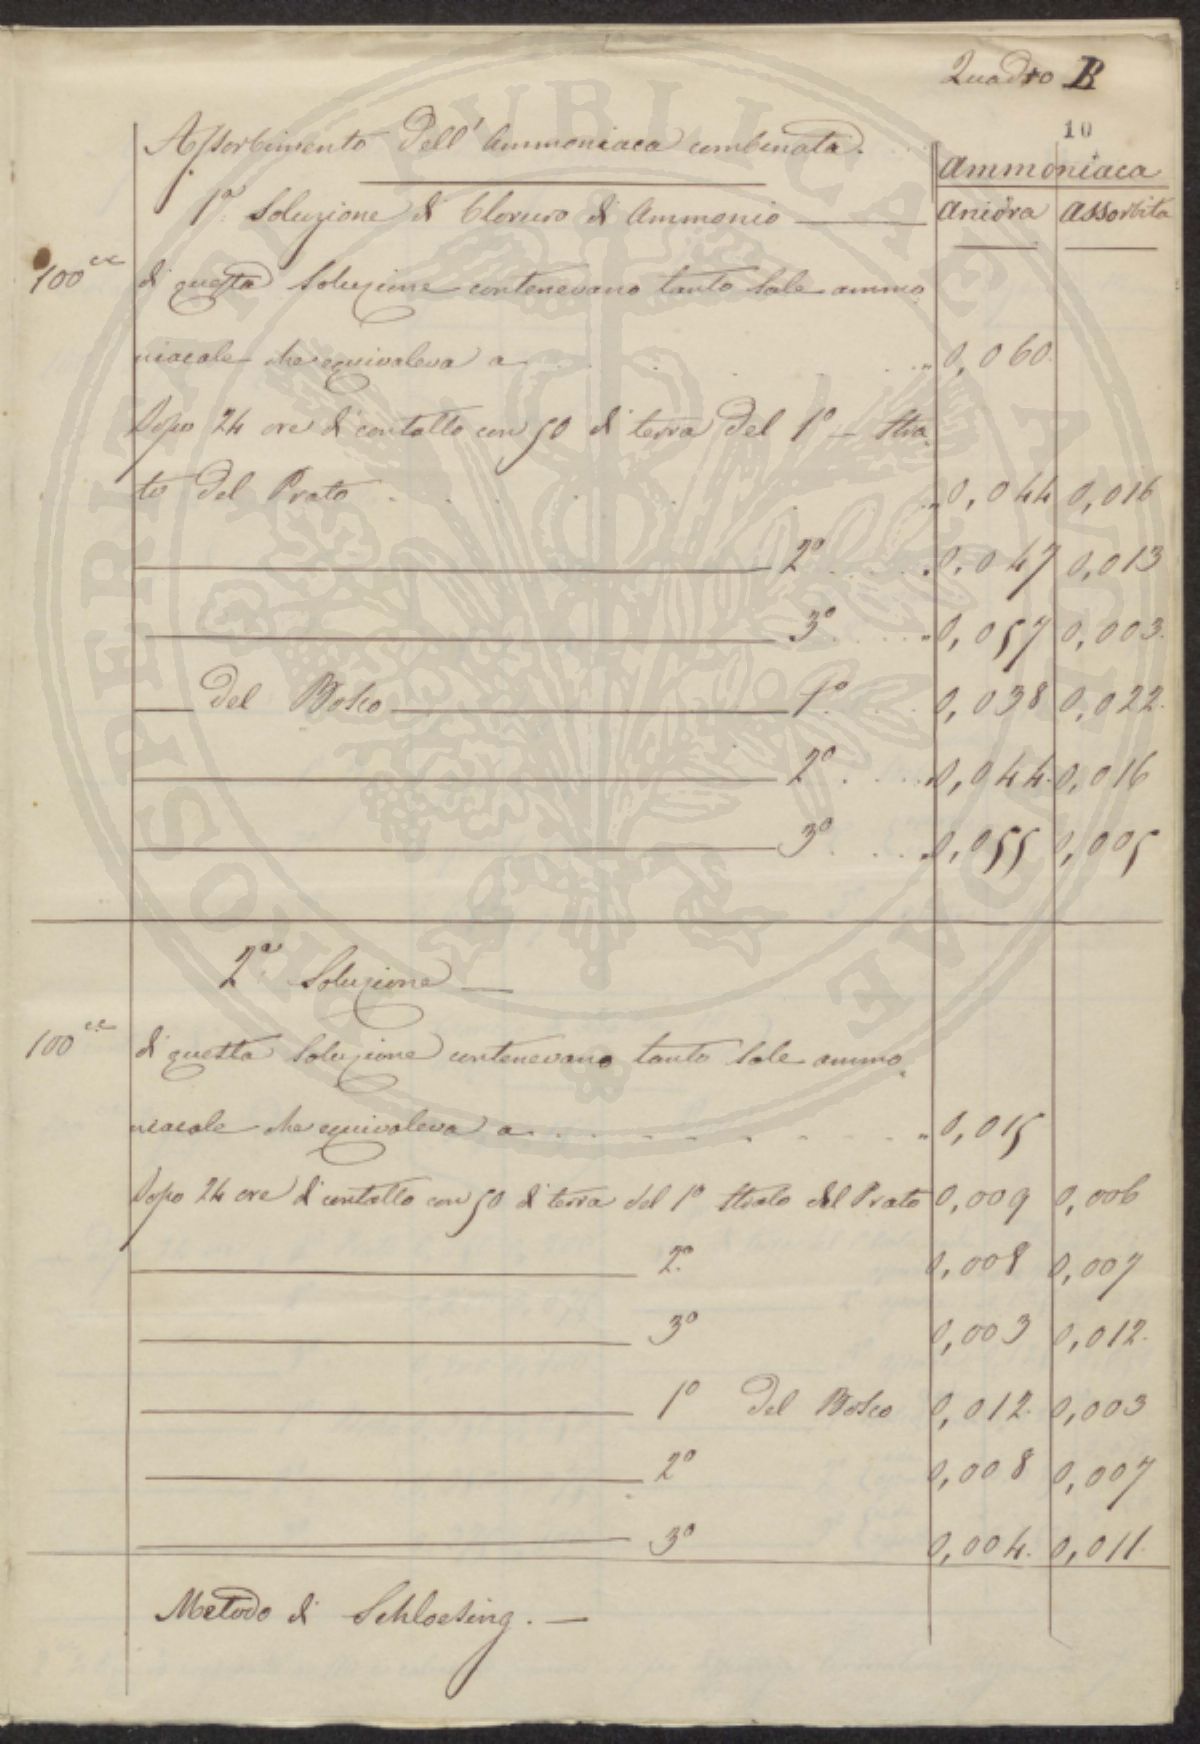 Quadro B
10
Assorbimento dell'Ammoniaca combinata.
Ammoniaca
1ª Soluzione di Cloruro di Ammonio
Anidra Assorbita
100 cc di questa Soluzione contenevano tanto Sale ammo
niacale che equivaleva a . . . . . „ 0,060.
Dopo 24 ore di contatto con 50 di terra del 1º – Stra„
to del Prato . . . . . . „ 0,044 0,016
2º . . . . . 0,047 0,013
3º . . . . „ 0,057 0,003.
del Bosco 1º . . . . 0,038 0,022.
2º . . . . 0,044. 0,016
3º . . . . 0,055 0,005
2ª Soluzione
100 cc di questa Soluzione contenevano tanto Sale ammo„
niacale che equivaleva a . . . . . . . „ 0,015
Dopo 24 ore di contatto con 50 di terra del 1º Strato del Prato 0,009 0,006
2º 0,008 0,007
3º 0,003 0,012.
1º del Bosco 0,012. 0,003
2º 0,008 0,007
3º 0,004. 0,011.
Metodo di Schloesing. —